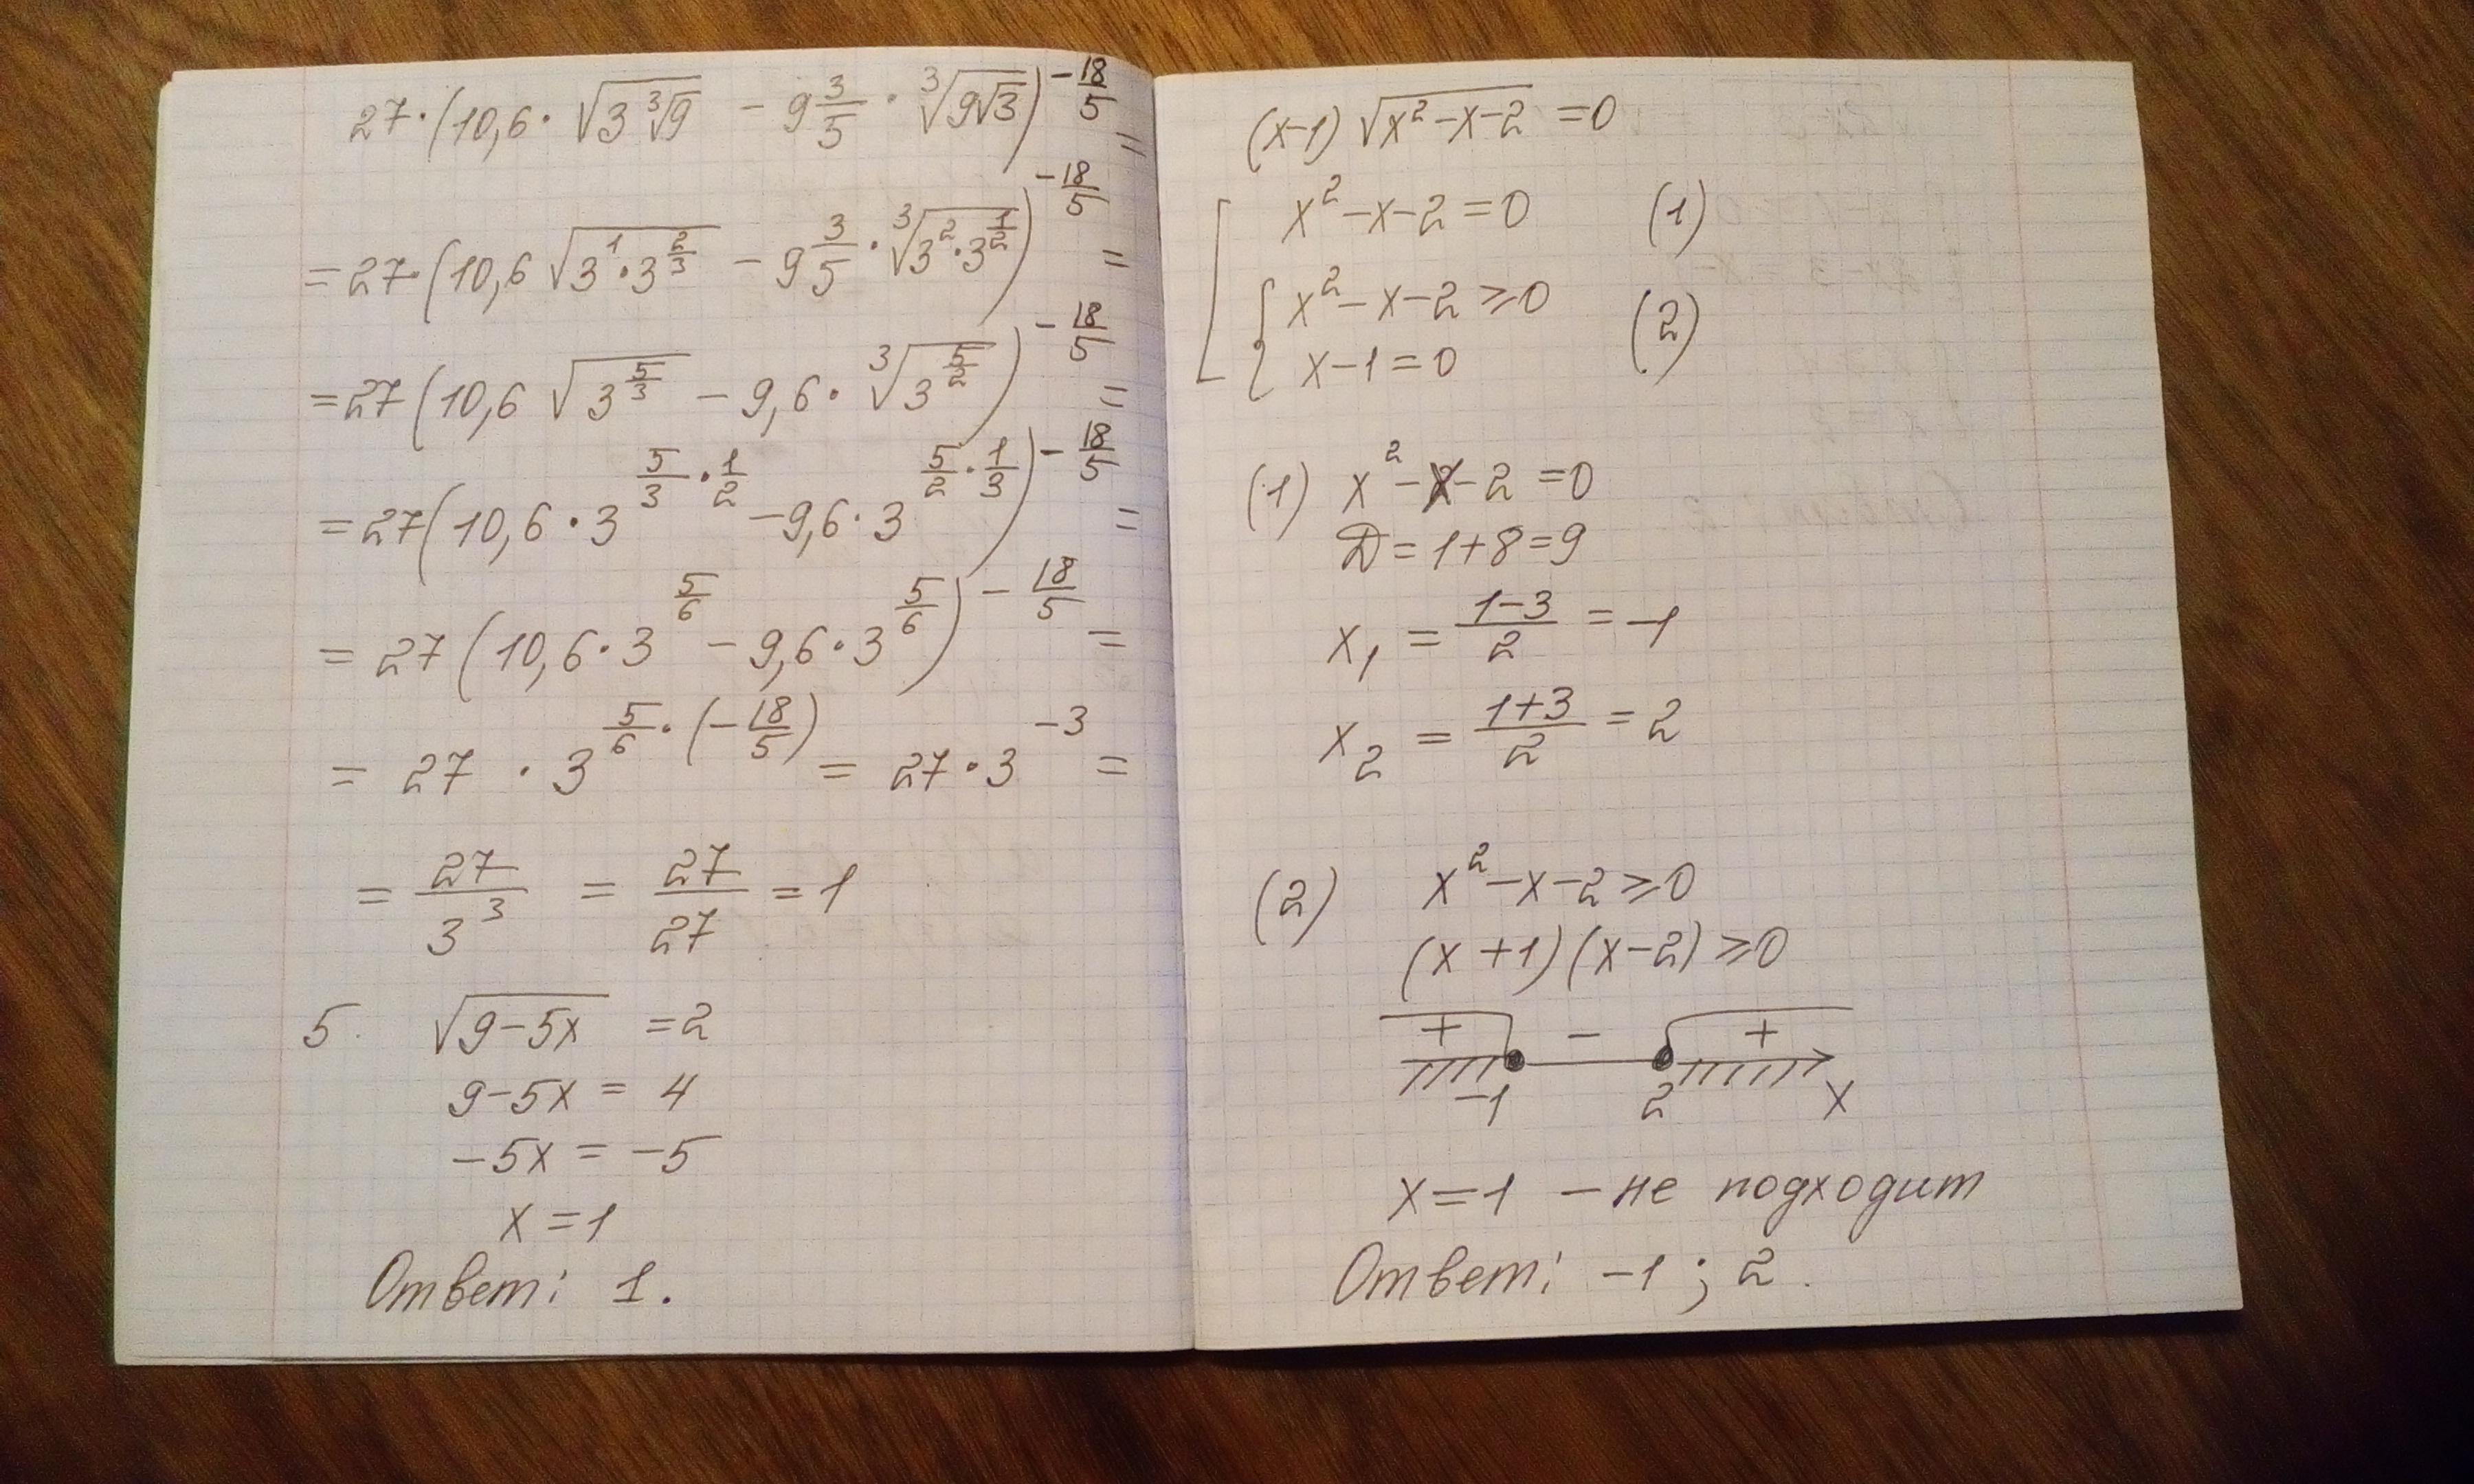 27·(10,6·√(3∛9) − 9 3/5 · ∛(9√3))^(−18/5) =
= 27·(10,6 √(3¹·3^(2/3)) − 9 3/5 · ∛(3²·3^(1/2)))^(−18/5) =
= 27(10,6 √(3^(5/3)) − 9,6 · ∛(3^(5/2)))^(−18/5) =
= 27(10,6·3^(5/3·1/2) − 9,6·3^(5/2·1/3))^(−18/5) =
= 27(10,6·3^(5/6) − 9,6·3^(5/6))^(−18/5) =
= 27 · 3^(5/6·(−18/5)) = 27·3^(−3) =
= 27/3³ = 27/27 = 1
5. √(9−5x) = 2
9−5x = 4
−5x = −5
x = 1
Ответ: 1.
(x−1) √(x²−x−2) = 0
[ x²−x−2=0 (1)
{ x²−x−2 ≥ 0 (2)
x−1=0
(1) x²−x−2=0
D=1+8=9
x₁ = (1−3)/2 = −1
x₂ = (1+3)/2 = 2
(2) x²−x−2 ≥ 0
(x+1)(x−2) ≥ 0
+ − +
−1 2 x
x=1 − не подходит
Ответ: −1; 2.